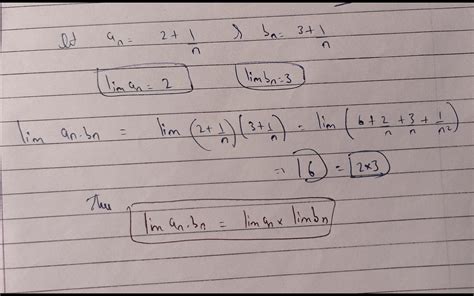 let an = 2 + 1/n & bn = 3 + 1/n
lim an = 2 lim bn = 3
lim an.bn = lim (2 + 1/n)(3 + 1/n) = lim (6 + 2/n + 3/n + 1/n²)
= 6 = 2×3
Thus
lim an.bn = lim an × lim bn